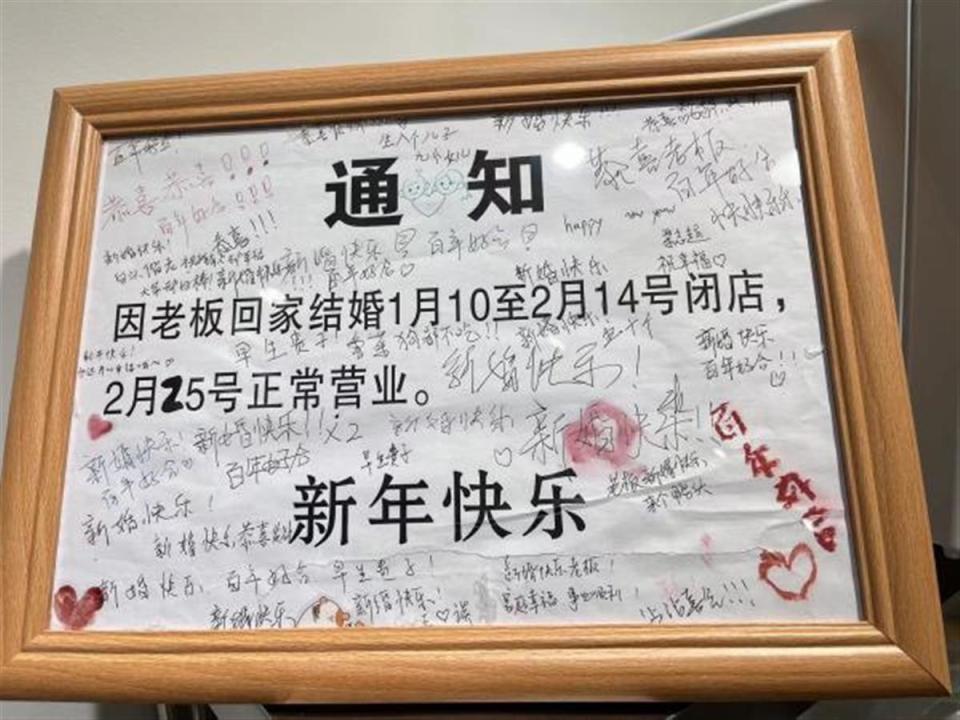 百年好合!
生八个儿子
九个女儿
新婚快乐!!!
恭喜老板
百年好合
快快乐乐
恭喜 恭喜!!!
百年好合!!!
通知
happy new year
新婚快乐!
恭喜!!!
新婚快乐
百年好合
百年好合♡
新婚快乐
祝幸福♡
因老板回家结婚1月10至2月14号闭店,
早生贵子!
狗都不吃!!
新婚快乐
新婚快乐!
新婚快乐
百年好合!!♡
2月25号正常营业。
新婚快乐!
百年好合♡
新婚快乐!!x2
百年好合
早生贵子
新婚快乐
♡新婚快乐!!
百年好合
新年快乐
老板新婚快乐,
新婚快乐!
新婚快乐恭喜
新婚快乐 百年好合 早生贵子!
新婚快乐
新婚快乐!
新婚快乐老板!
家庭幸福 事业顺利!
沾沾喜气!!!